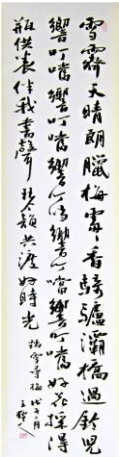 雪霽天晴朗臘梅處々香騎驢灞橋過鈴兒
響叮噹響叮噹響叮噹響叮噹響叮噹好花採得
瓶供養伴我書聲琴韻共渡好時光
踏雪尋梅